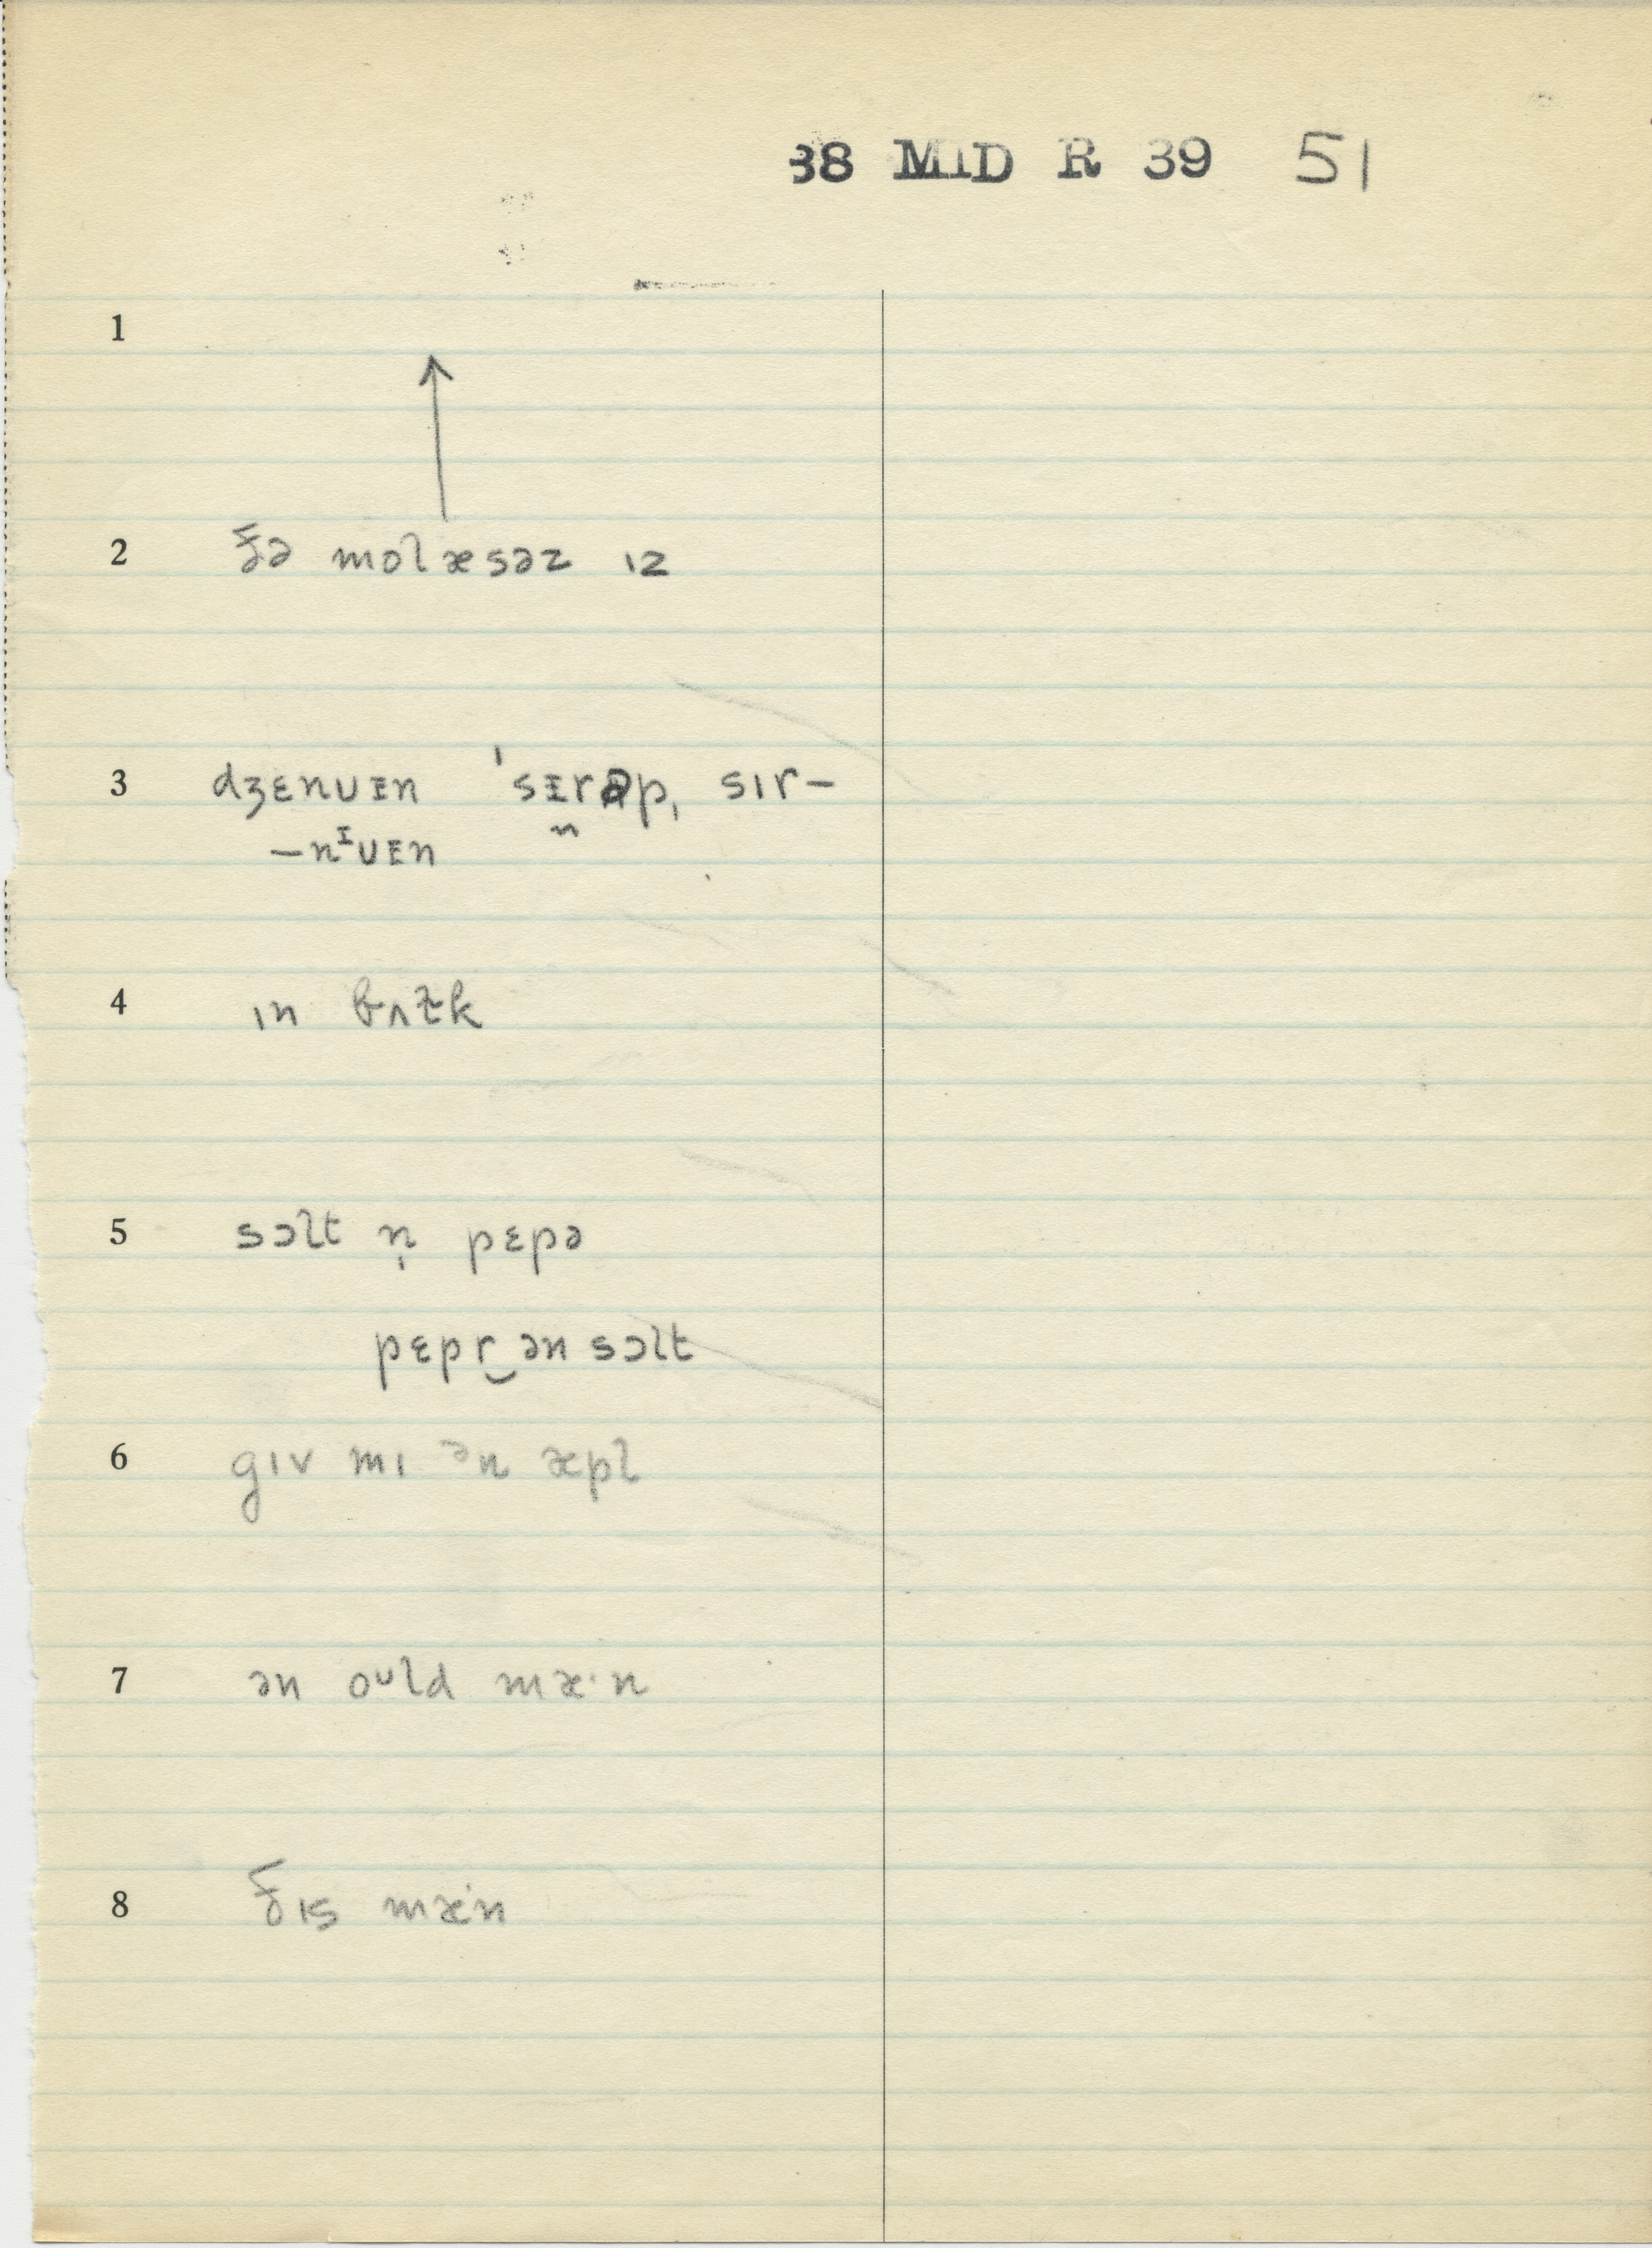 38 MID R 39 51
1
2 ðə molæsəz ɪz
3 dʒɛnᴜᵻn 'sᵻrəp, sɪr–
–nᶦᴜᴇn
4 ɪn bʌɫk
5 sɔlt n̩ pɛpə
pɛpr‿ən sɔlt
6 gɪv mɪ ən æpl
7 ən oᶷld mæ·n
8 ðɪs mæ·n